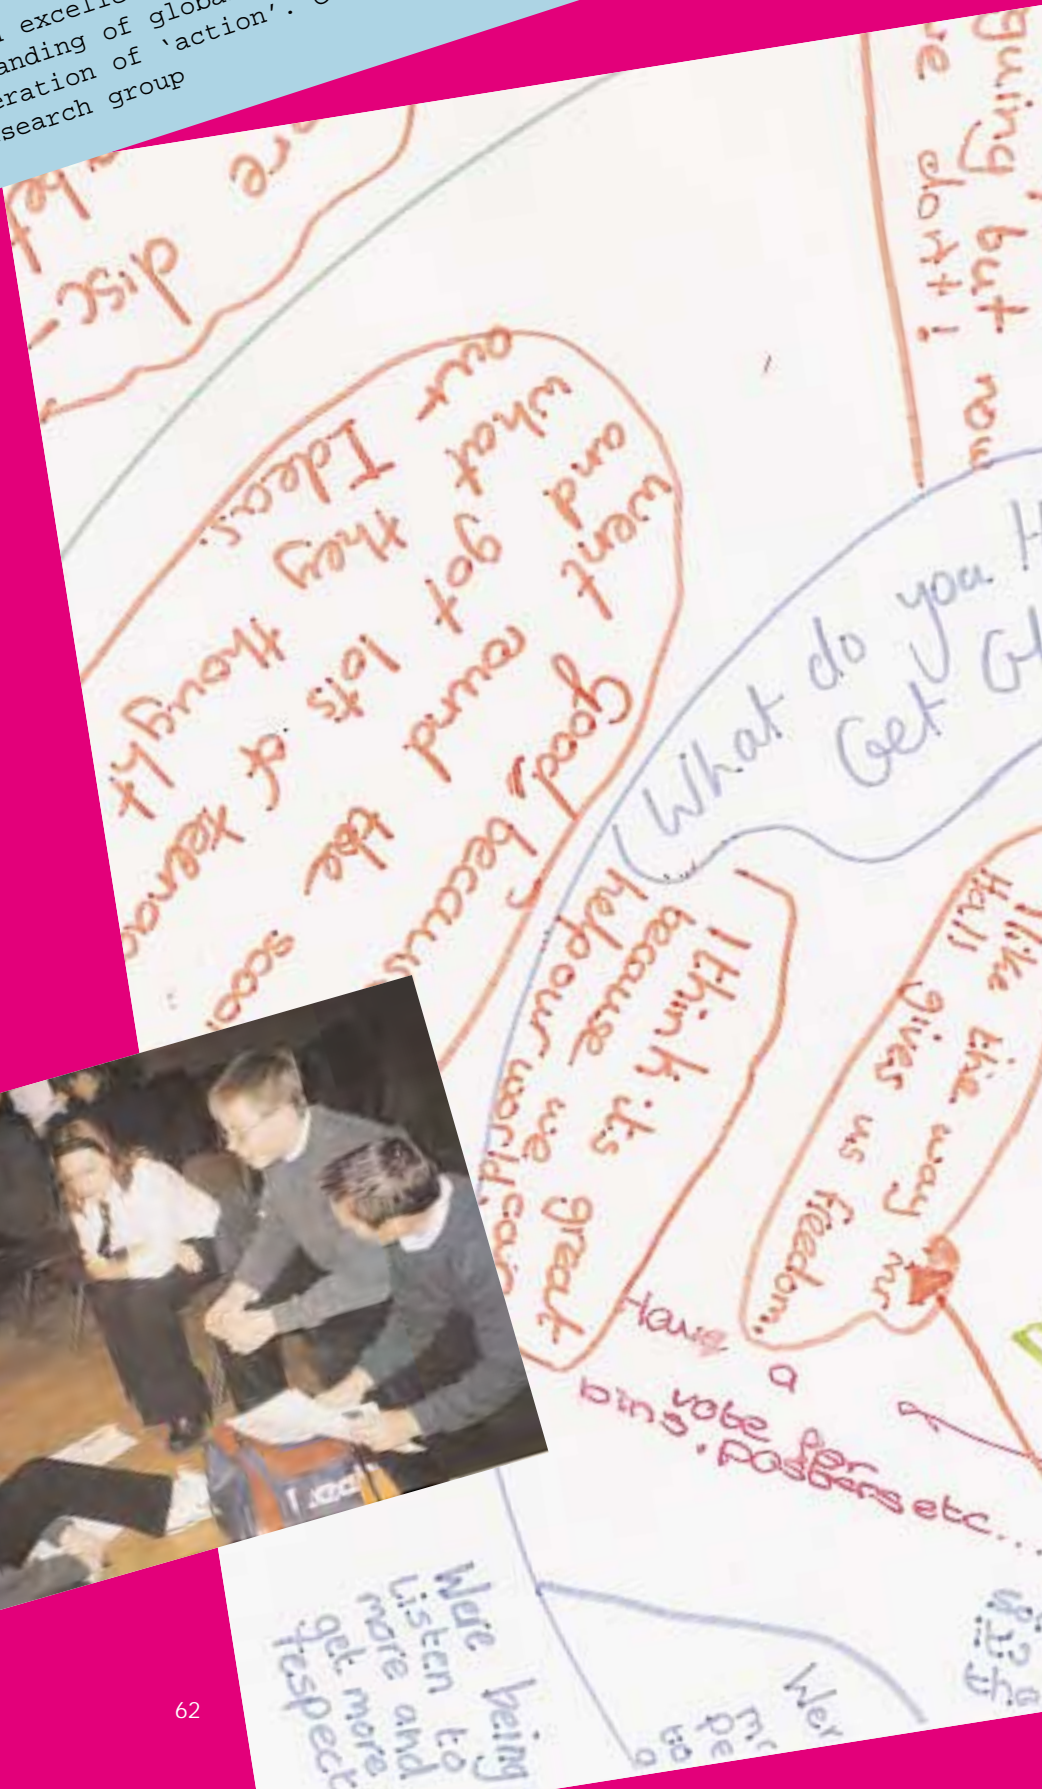 excelle
anding of globa
eration of 'action'.
search group
are
disc-
guing, but now
we don't!
Good, because
went round the scool
and got lots of teenag
what they thought
our Ideas.
What do you
Get Gl
I think its great
because we can
help our world.
I like the way Mr
Hall gives us freedom..
Have a
vote for
bins. posters etc...
Were being
Listen to
more and
get more
respect
Wer
62